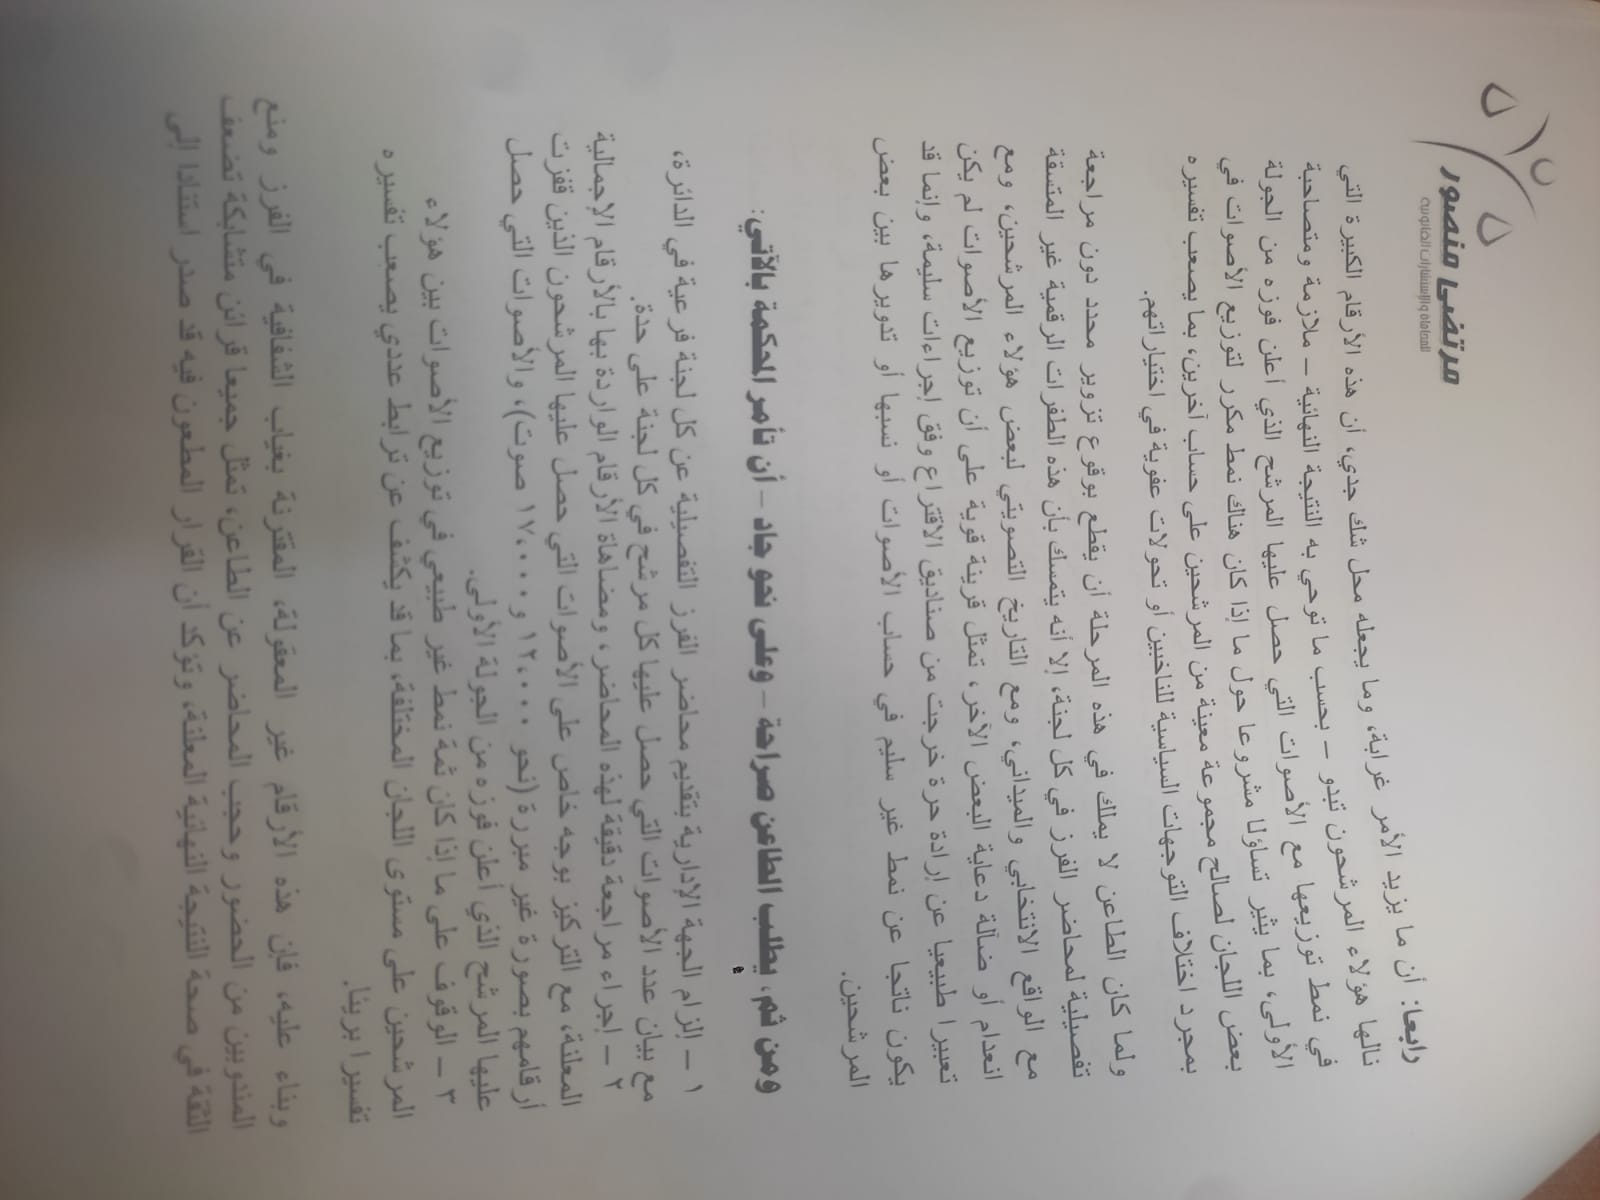 مرتضى منصور
للمحاماة والإستشارات القانونية
رابعا: أن ما يزيد الأمر غرابة، وما يجعله محل شك جدي، أن هذه الأرقام الكبيرة التي
نالها هؤلاء المرشحون تبدو – بحسب ما توحي به النتيجة النهائية – ملازمة ومتصاحبة
في نمط توزيعها مع الأصوات التي حصل عليها المرشح الذي أعلن فوزه من الجولة
الأولى، بما يثير تساؤلا مشروعا حول ما إذا كان هناك نمط مكرر لتوزيع الأصوات في
بعض اللجان لصالح مجموعة معينة من المرشحين على حساب آخرين، بما يصعب تفسيره
بمجرد اختلاف التوجهات السياسية للناخبين أو تحولات عفوية في اختياراتهم.
ولما كان الطاعن لا يملك في هذه المرحلة أن يقطع بوقوع تزوير محدد دون مراجعة
تفصيلية لمحاضر الفرز في كل لجنة، إلا أنه يتمسك بأن هذه الطفرات الرقمية غير المتسقة
مع الواقع الانتخابي والميداني، ومع التاريخ التصويتي لبعض هؤلاء المرشحين، ومع
انعدام أو ضآلة دعاية البعض الآخر، تمثل قرينة قوية على أن توزيع الأصوات لم يكن
تعبيرا طبيعيا عن إرادة حرة خرجت من صناديق الاقتراع وفق إجراءات سليمة، وإنما قد
يكون ناتجا عن نمط غير سليم في حساب الأصوات أو نسبها أو تدويرها بين بعض
المرشحين.
ومن ثم، يطلب الطاعن صراحة – وعلى نحو جاد – أن تأمر المحكمة بالآتي:
١ – إلزام الجهة الإدارية بتقديم محاضر الفرز التفصيلية عن كل لجنة فرعية في الدائرة،
مع بيان عدد الأصوات التي حصل عليها كل مرشح في كل لجنة على حدة.
٢ – إجراء مراجعة دقيقة لهذه المحاضر، ومضاهاة الأرقام الواردة بها بالأرقام الإجمالية
المعلنة، مع التركيز بوجه خاص على الأصوات التي حصل عليها المرشحون الذين قفزت
أرقامهم بصورة غير مبررة (نحو ١٢,٠٠٠ و١٧,٠٠٠ صوت)، والأصوات التي حصل
عليها المرشح الذي أعلن فوزه من الجولة الأولى.
٣ – الوقوف على ما إذا كان ثمة نمط غير طبيعي في توزيع الأصوات بين هؤلاء
المرشحين على مستوى اللجان المختلفة، بما قد يكشف عن ترابط عددي يصعب تفسيره
تفسيرا بريئا.
وبناء عليه، فإن هذه الأرقام غير المعقولة، المقترنة بغياب الشفافية في الفرز ومنع
المندوبين من الحضور وحجب المحاضر عن الطاعن، تمثل جميعا قرائن متشابكة تضعف
الثقة في صحة النتيجة النهائية المعلنة، وتؤكد أن القرار المطعون فيه قد صدر استنادا إلى